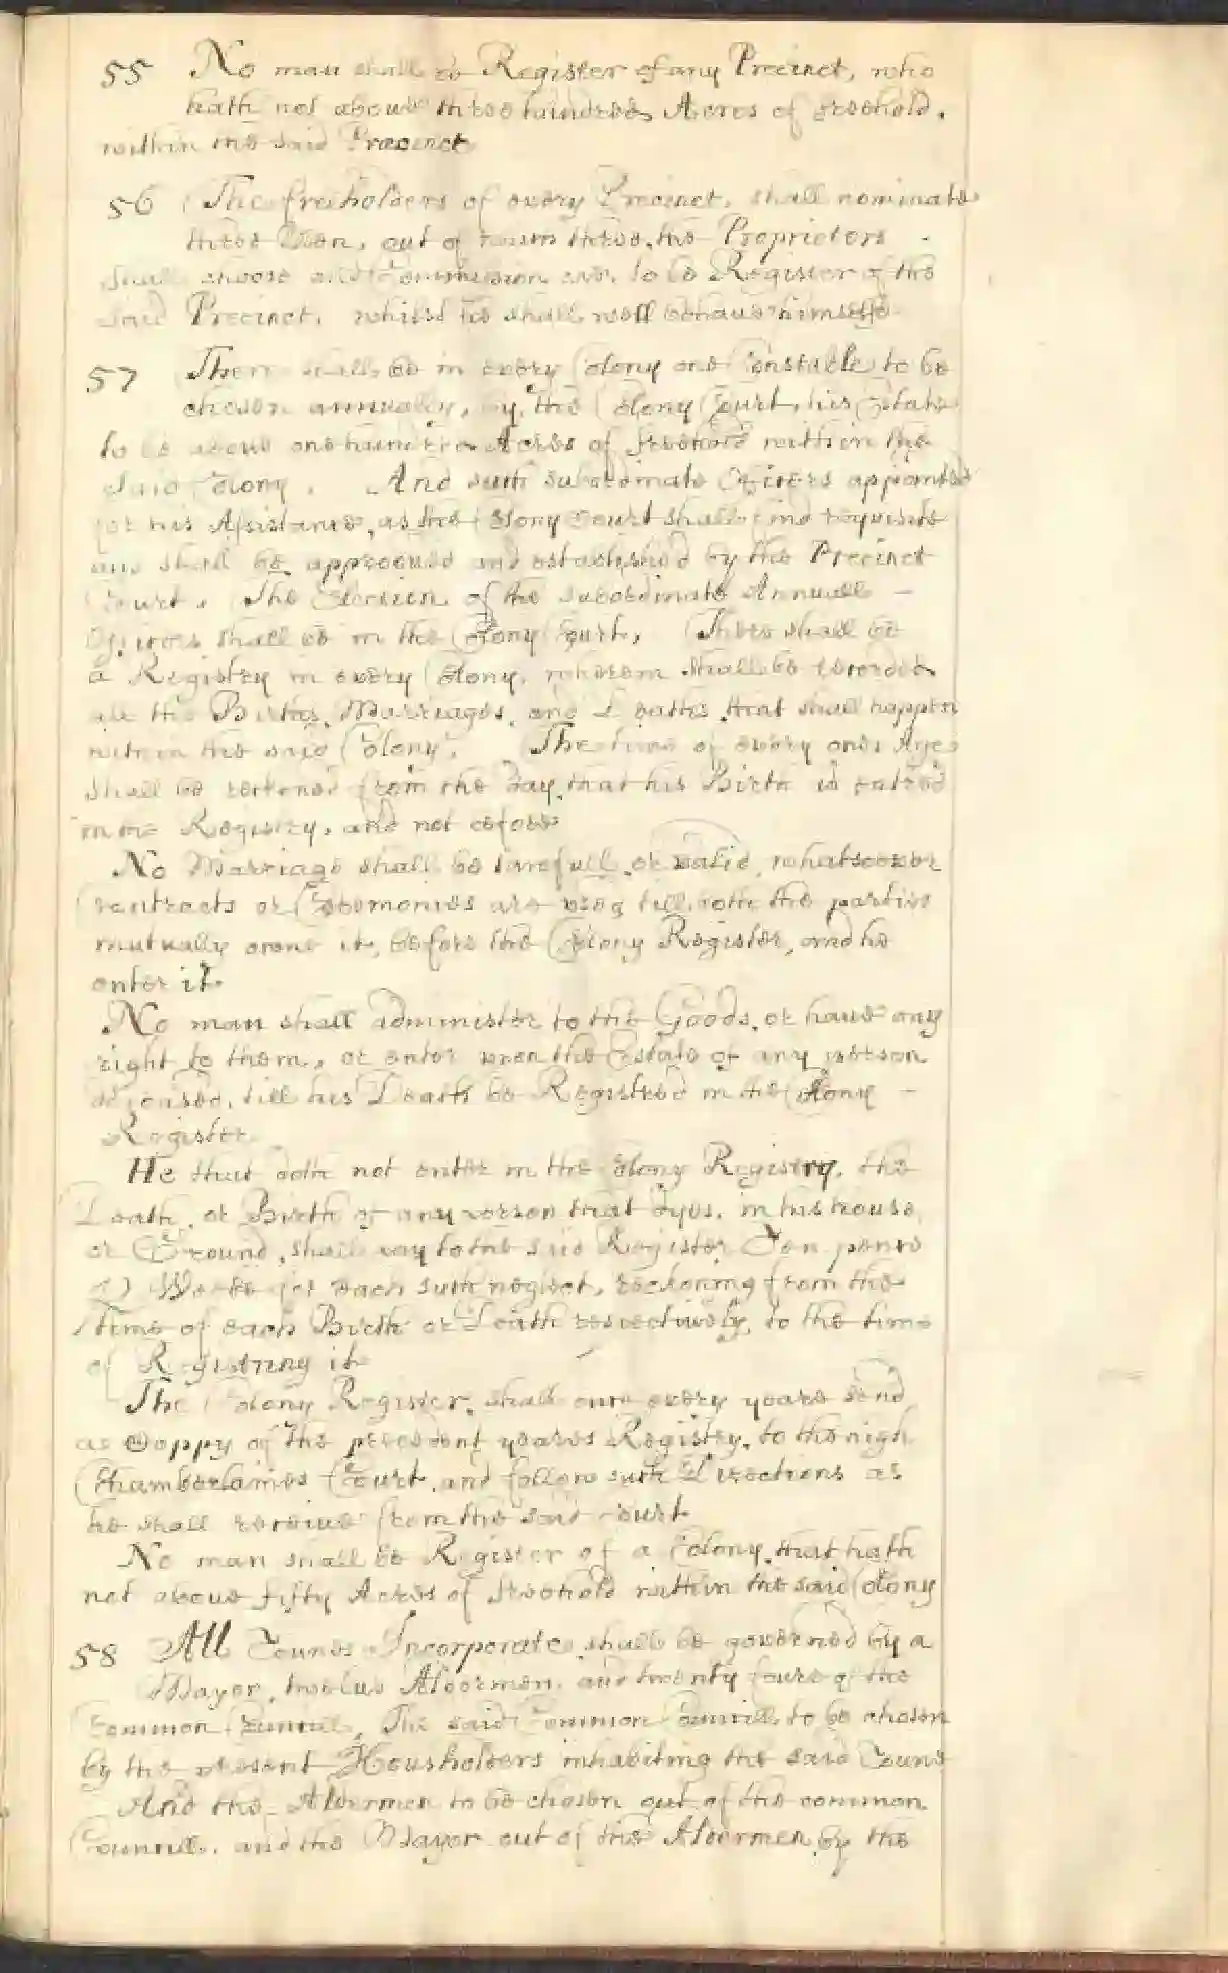 55 No man shall be Register of any Precinct, who
hath not aboue three hundred Acres of freehold.
within the said Precinct
56 The freeholders of every Precinct, shall nominate
three Men, out of which three, the Proprietors
shall choose and Commission one, to be Register of the
said Precinct, whilst he shall well behaue himselfe.
57 There shall be in every Colony one Constable to be
chosen annually, by the Colony Court, his Estate
to be aboue one hundred Acres of freehold within the
said Colony. And such subordinate Officers appointed
for his Assistance, as the Colony Court shall find requisite
and shall be approoued and established by the Precinct
Court. The Election of the subordinate Annuall –
Officers shall be in the Colony Court, There shall be
a Registry in every Colony, wherein shall be recorded
all the Births, Marriages, and Deaths that shall happen
within the said Colony. The time of every ones Age
shall be reckoned from the day that his Birth is entred
in the Registry, and not before
No Marriage shall be lawfull or valid, whatsoever
Contracts or Ceremonies are used till both the parties
mutually owne it, before the Colony Register, and he
enter it
No man shall administer to the Goods, or haue any
right to them, or enter upon the Estate of any person
deceased, till his Death be Registred in the Colony –
Register
He that doth not enter in the Colony Registry, the
Death, or Birth of any person that dyes, in his house,
or Ground, shall pay to the said Register Ten pence
Weeke for each such neglect, reckoning from the
time of each Birth or Death respectively, to the time
of Registring it
The Colony Register, shall once every yeare send
a Coppy of the precedent yeares Registry, to the high
Chamberlaines Court, and follow such Directions as
he shall receiue from the said Court
No man shall be Register of a Colony, that hath
not aboue fifty Acres of freehold within the said Colony
58 All Townes Incorporate, shall be governed by a
Mayor, twelue Aldermen, and twenty foure of the
Common Councill, The said Common Councill, to be chosen
by the present Housholders inhabiting the said Towne
And the Aldermen to be chosen out of the common
Councill, and the Mayor out of the Aldermen by the